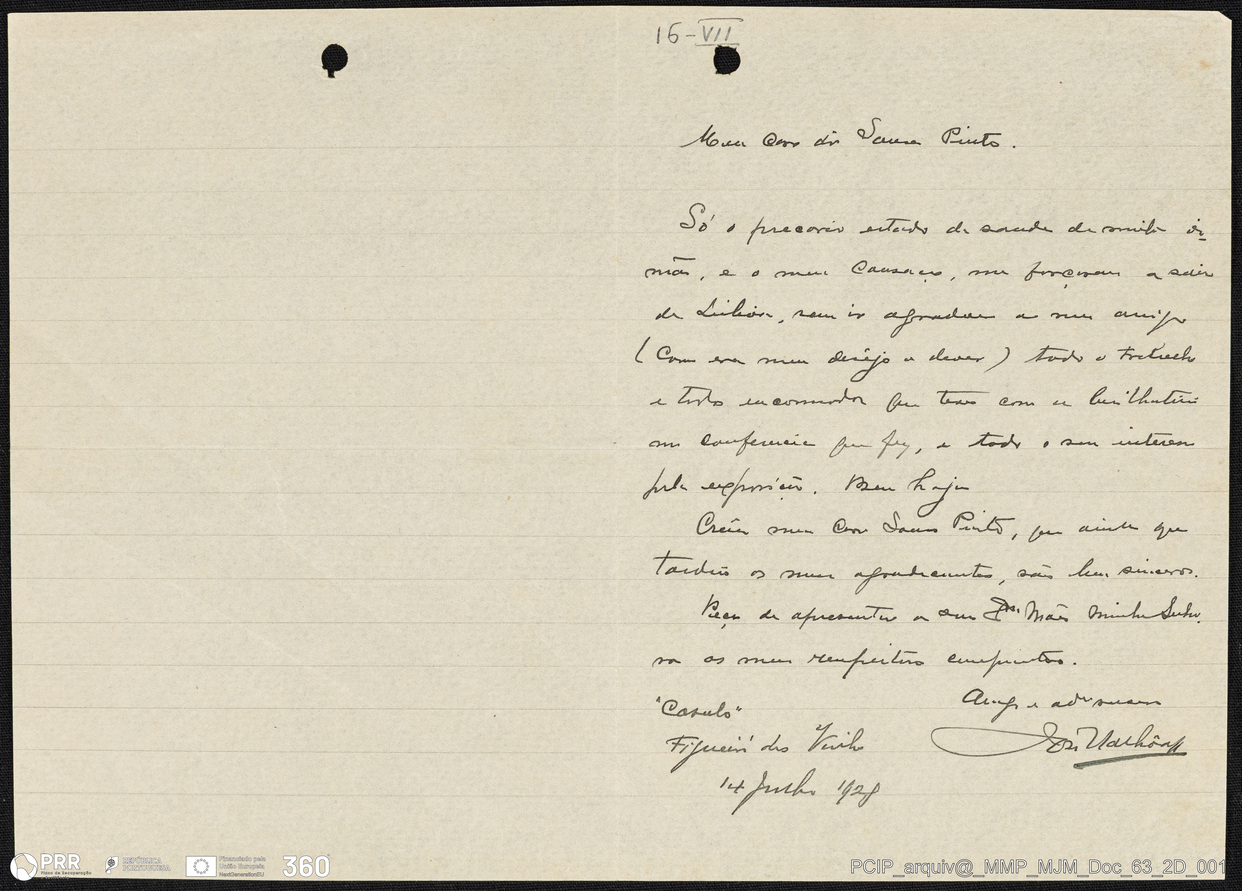 16-VII
Meu caro dr Sousa Pinto.
Só o precario estado de saude de minha ir-
mão, e o meu cansaço, me forçaram a sair
de Lisboa, sem ir agradecer ao meu amigo
(como era meu desejo e dever) todo o
e todo encommodo que teve com a brilhantissi
ma conferencia que fez, e todo o seu interesse
pela exposição. Bem haja
Creia meu caro Sousa Pinto, que ainda que
tardios os meus agradecimentos, são bem sinceros.
Peço de apresentar a sua Exma. Mãe minha Senho-
ra os meus respeitosos cumprimentos.
Amigo e admor
"Casulo"
José Malhôa
Figueiró dos Vinhos
14 Julho 1928
PRR
Plano de Recuperação
REPÚBLICA
PORTUGUESA
Financiado pela
União Europeia
NextGenerationEU
360°
PCIP_arquiv@_MMP_MJM_Doc_63_2D_001